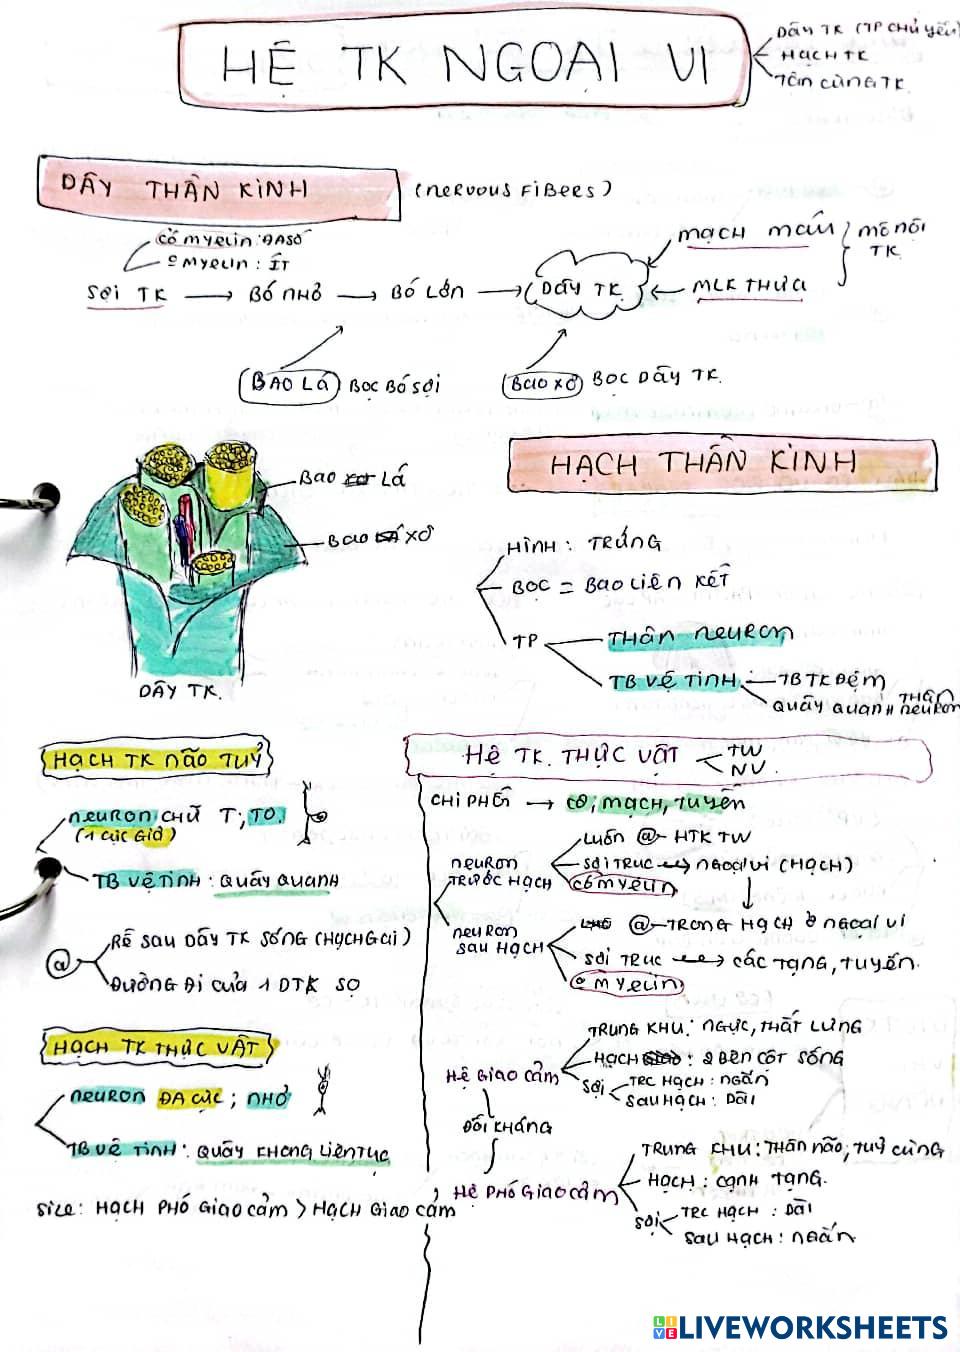 HỆ TK NGOẠI VI
DÂY TK (TP CHỦ YẾU)
HẠCH TK
TÂN CÙNG TK
DÂY THẦN KINH (nervous Fibees)
có myelin: ĐASỐ
o myelin: ÍT
Sợi TK → Bó nhỏ → Bó Lớn → DÂY TK
mạch máu
MLK THƯA
mô nội TK
BAO LÁ BỌC BÓ SỢI
BAO XƠ BỌC DÂY TK.
BAO LÁ
BAO XƠ
DÂY TK.
HẠCH THẦN KINH
HÌNH: TRỨNG
BỌC = BAO LIÊN KẾT
TP
THÂN NEURON
TB VỆ TINH
TB TK ĐỆM
QUÂY QUANH THÂN NEURON
HẠCH TK NÃO TUỶ
NEURON CHỮ T; TO.
(1 CỰC GIẢ)
TB VỆ TINH: QUÂY QUANH
@
RỄ SAU DÂY TK SỐNG (HẠCH GAI)
ĐƯỜNG ĐI CỦA 1 DTK SỌ
HẠCH TK THỰC VẬT
NEURON ĐA CỰC; NHỎ
TB VỆ TINH: QUÂY KHÔNG LIÊN TỤC
Size: HẠCH PHÓ GIAO CẢM > HẠCH GIAO CẢM
HỆ TK. THỰC VẬT
TW
NV.
CHI PHỐI → CƠ; MẠCH, TUYẾN
NEURON TRƯỚC HẠCH
LUÔN @- HTK TW
SỢI TRỤC → NGOẠI VI (HẠCH)
CÓ MYELIN
NEURON SAU HẠCH
@- TRONG HẠCH Ở NGOẠI VI
SỢI TRỤC → CÁC TẠNG, TUYẾN.
o MYELIN
HỆ GIAO CẢM
TRUNG KHU: NGỰC, THẮT LƯNG
HẠCH: 2 BÊN CỘT SỐNG
SỢI
TRC HẠCH: NGẮN
SAU HẠCH: DÀI
ĐỐI KHÁNG
HỆ PHÓ GIAO CẢM
TRUNG KHU: THÂN NÃO; TUỶ CÙNG
HẠCH: CẠNH TẠNG.
SỢI
TRC HẠCH: DÀI
SAU HẠCH: NGẮN.
LIVEWORKSHEETS